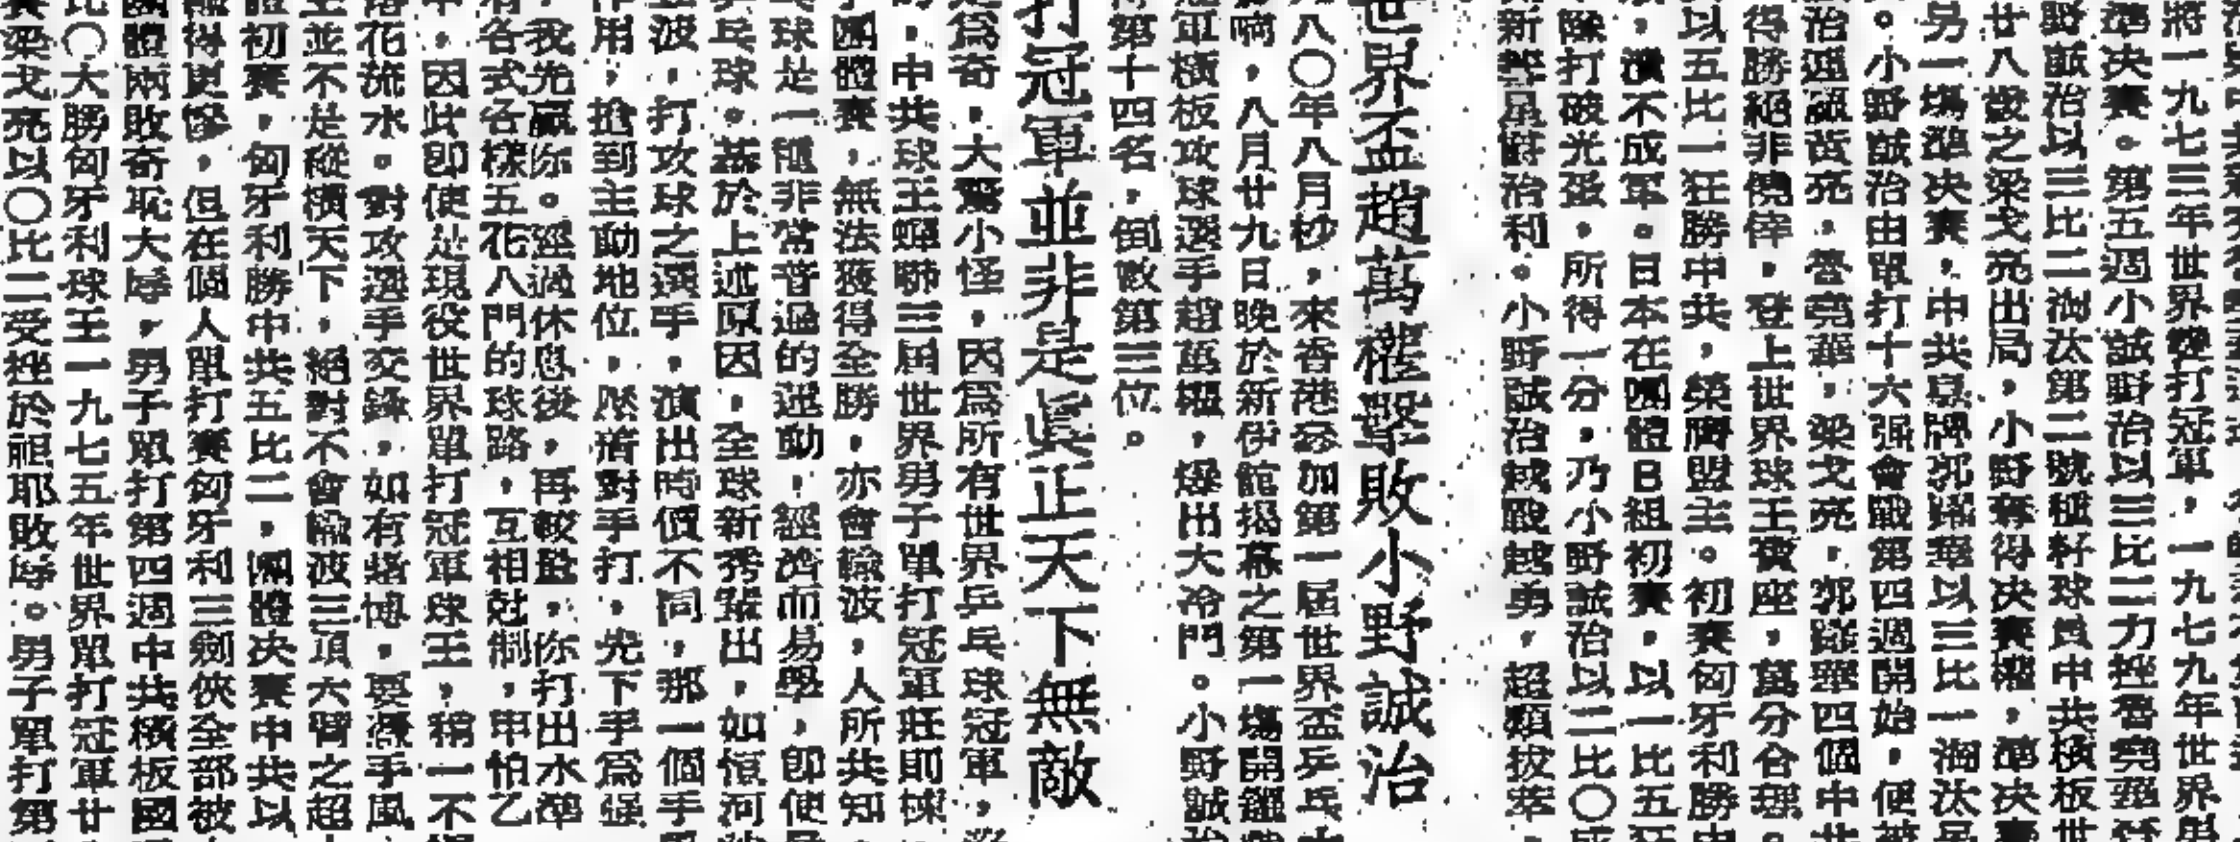 將一九七三年世界雙打冠軍，一九七九年世界男
準決賽。第五週小誠野治以三比二力挫魯堯
野誠治以三比二淘汰第二號種籽球員中共橫板世
廿八歲之梁戈亮出局，小野奪得決賽權，準決賽
另一場準決賽，中共皇牌郭躍華以三比一淘汰
。小野誠治由單打十六强會戰第四週開始，便
治連贏黃亮，魯堯華，梁戈亮，郭躍華四個中共
得勝絕非僥倖，登上世界球王寶座，萬分合理。
以五比一狂勝中共，榮膺盟主。初賽匈牙利勝中
，潰不成軍。日本在團體B組初賽，以一比五狂
除打破光蛋，所得一分，乃小野誠治以二比〇
新弊星爵治利。小野誠治越戰越勇，超類拔萃，
世界盃趙萬權擊敗小野誠治
八〇年八月杪，來香港參加第一屆世界盃乒乓
啊，八月廿九日晚於新伊館揭幕之第一場開鑼
冠軍橫板攻球選手趙萬權，爆出大冷門。小野誠治
第十四名，倒數第三位。
打冠軍並非是眞正天下無敵
爲奇，大驚小怪，因爲所有世界乒乓球冠軍，
，中共球王蟬聯三屆世界男子單打冠軍莊則棟
團體賽，無法獲得全勝，亦會輸波，人所共知
球是一種非常普通的運動，經濟而易學，即使
乓球。基於上述原因，全球新秀輩出，如恒河沙
波，打攻球之選手，演出時價不同，那一個手
作用，搶到主動地位，壓着對手打，先下手爲强
，我先贏你。經過休息後，再較量，你打出水準
有各式各樣五花八門的球路，互相尅制，甲怕乙
中，因此即使是現役世界單打冠軍球王，稍一不
落花流水。對攻選手交鋒，如有賭博，要憑手風
王並不是縱橫天下，絕對不會輸波三項六臂之超
初賽，匈牙利勝中共五比二，團體決賽中共以
輸得更慘，但在個人單打賽匈牙利三劍俠全部被
團體兩敗奇恥大辱，男子單打第四週中共橫板國
比〇大勝匈牙利球王一九七五年世界單打冠軍廿
梁戈亮以〇比二受挫於祖耶敗辱。男子單打第